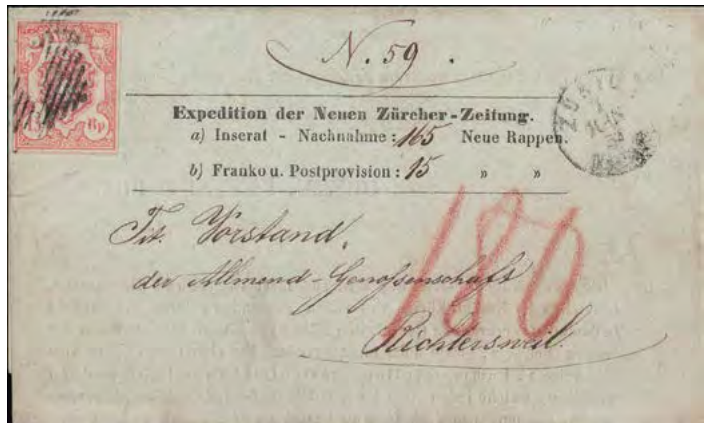 N. 59.
Expedition der Neuen Zürcher-Zeitung.
a) Inserat - Nachnahme: 165 Neue Rappen.
b) Franko u. Postprovision: 15 " "
180
Tit. Vorstand,
der Allmend-Genoßenschaft
Richtersweil.
15 Rp
ZÜRICH